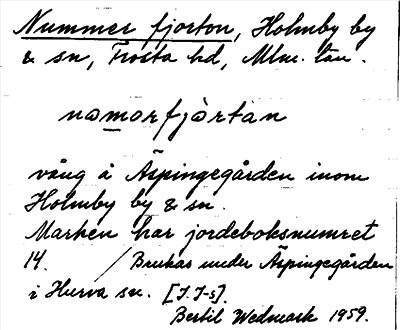 Nummer fjorton, Holmby by
& sn, Frosta hd, Mlm. län.
namorfjòrtàn
vång å Äspingegården inom
Holmby by & sn.
Marken har jordeboksnumret
14. / Brukas under Äspingegården
i Hurva sn. [I.I-s].
Bertil Wedmark 1959.